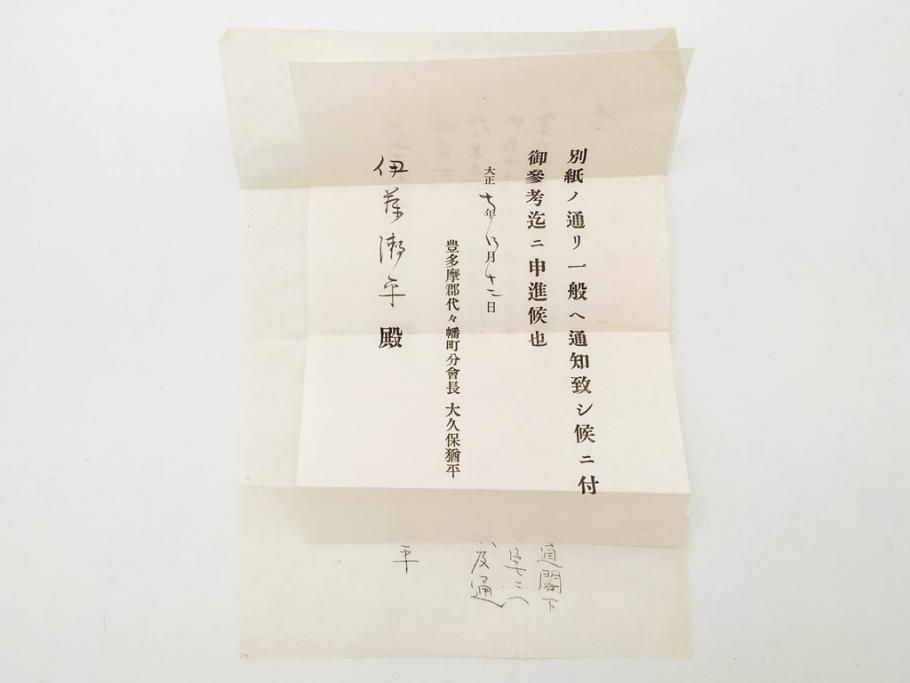 別紙ノ通リ一般ヘ通知致シ候ニ付
御參考迄ニ申進候也
大正十年 月十二日
豊多摩郡代々幡町分會長 大久保猶平
伊藤 平殿
閣下
及通
平